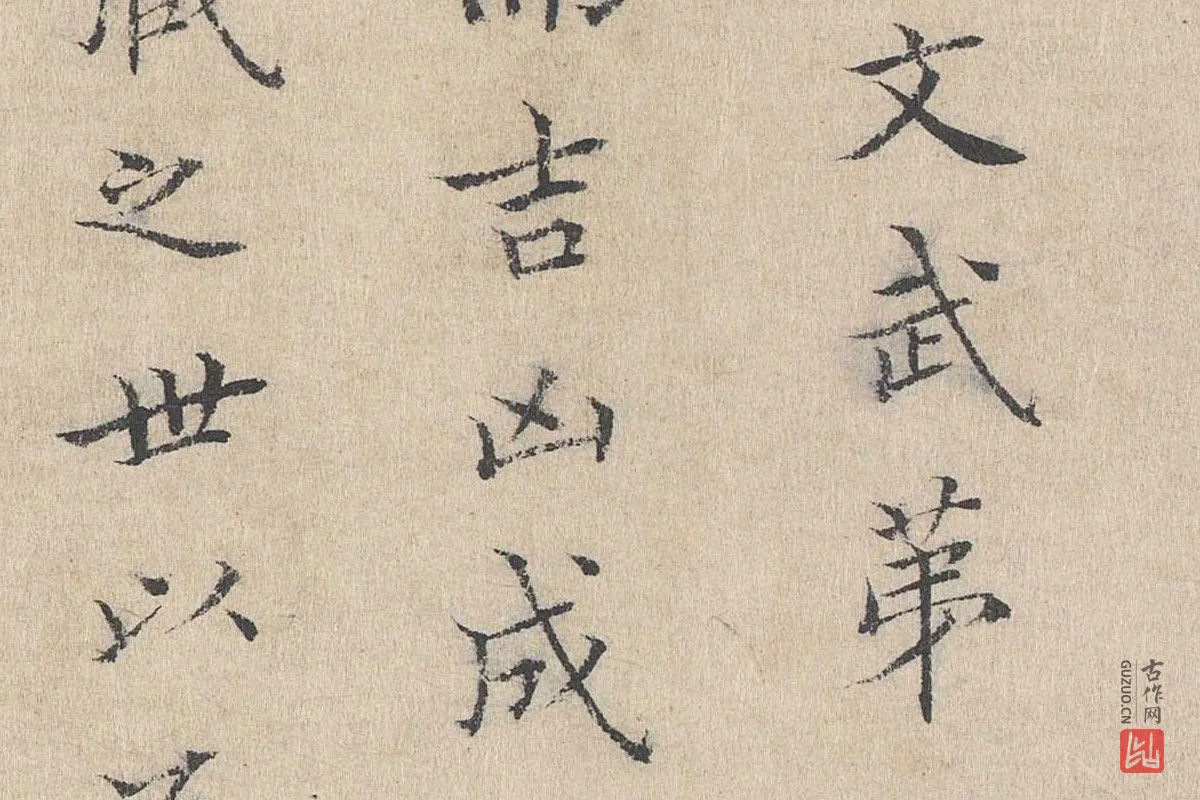 文武苐
吉凶成
之世以
古作网
GUZUO.CN